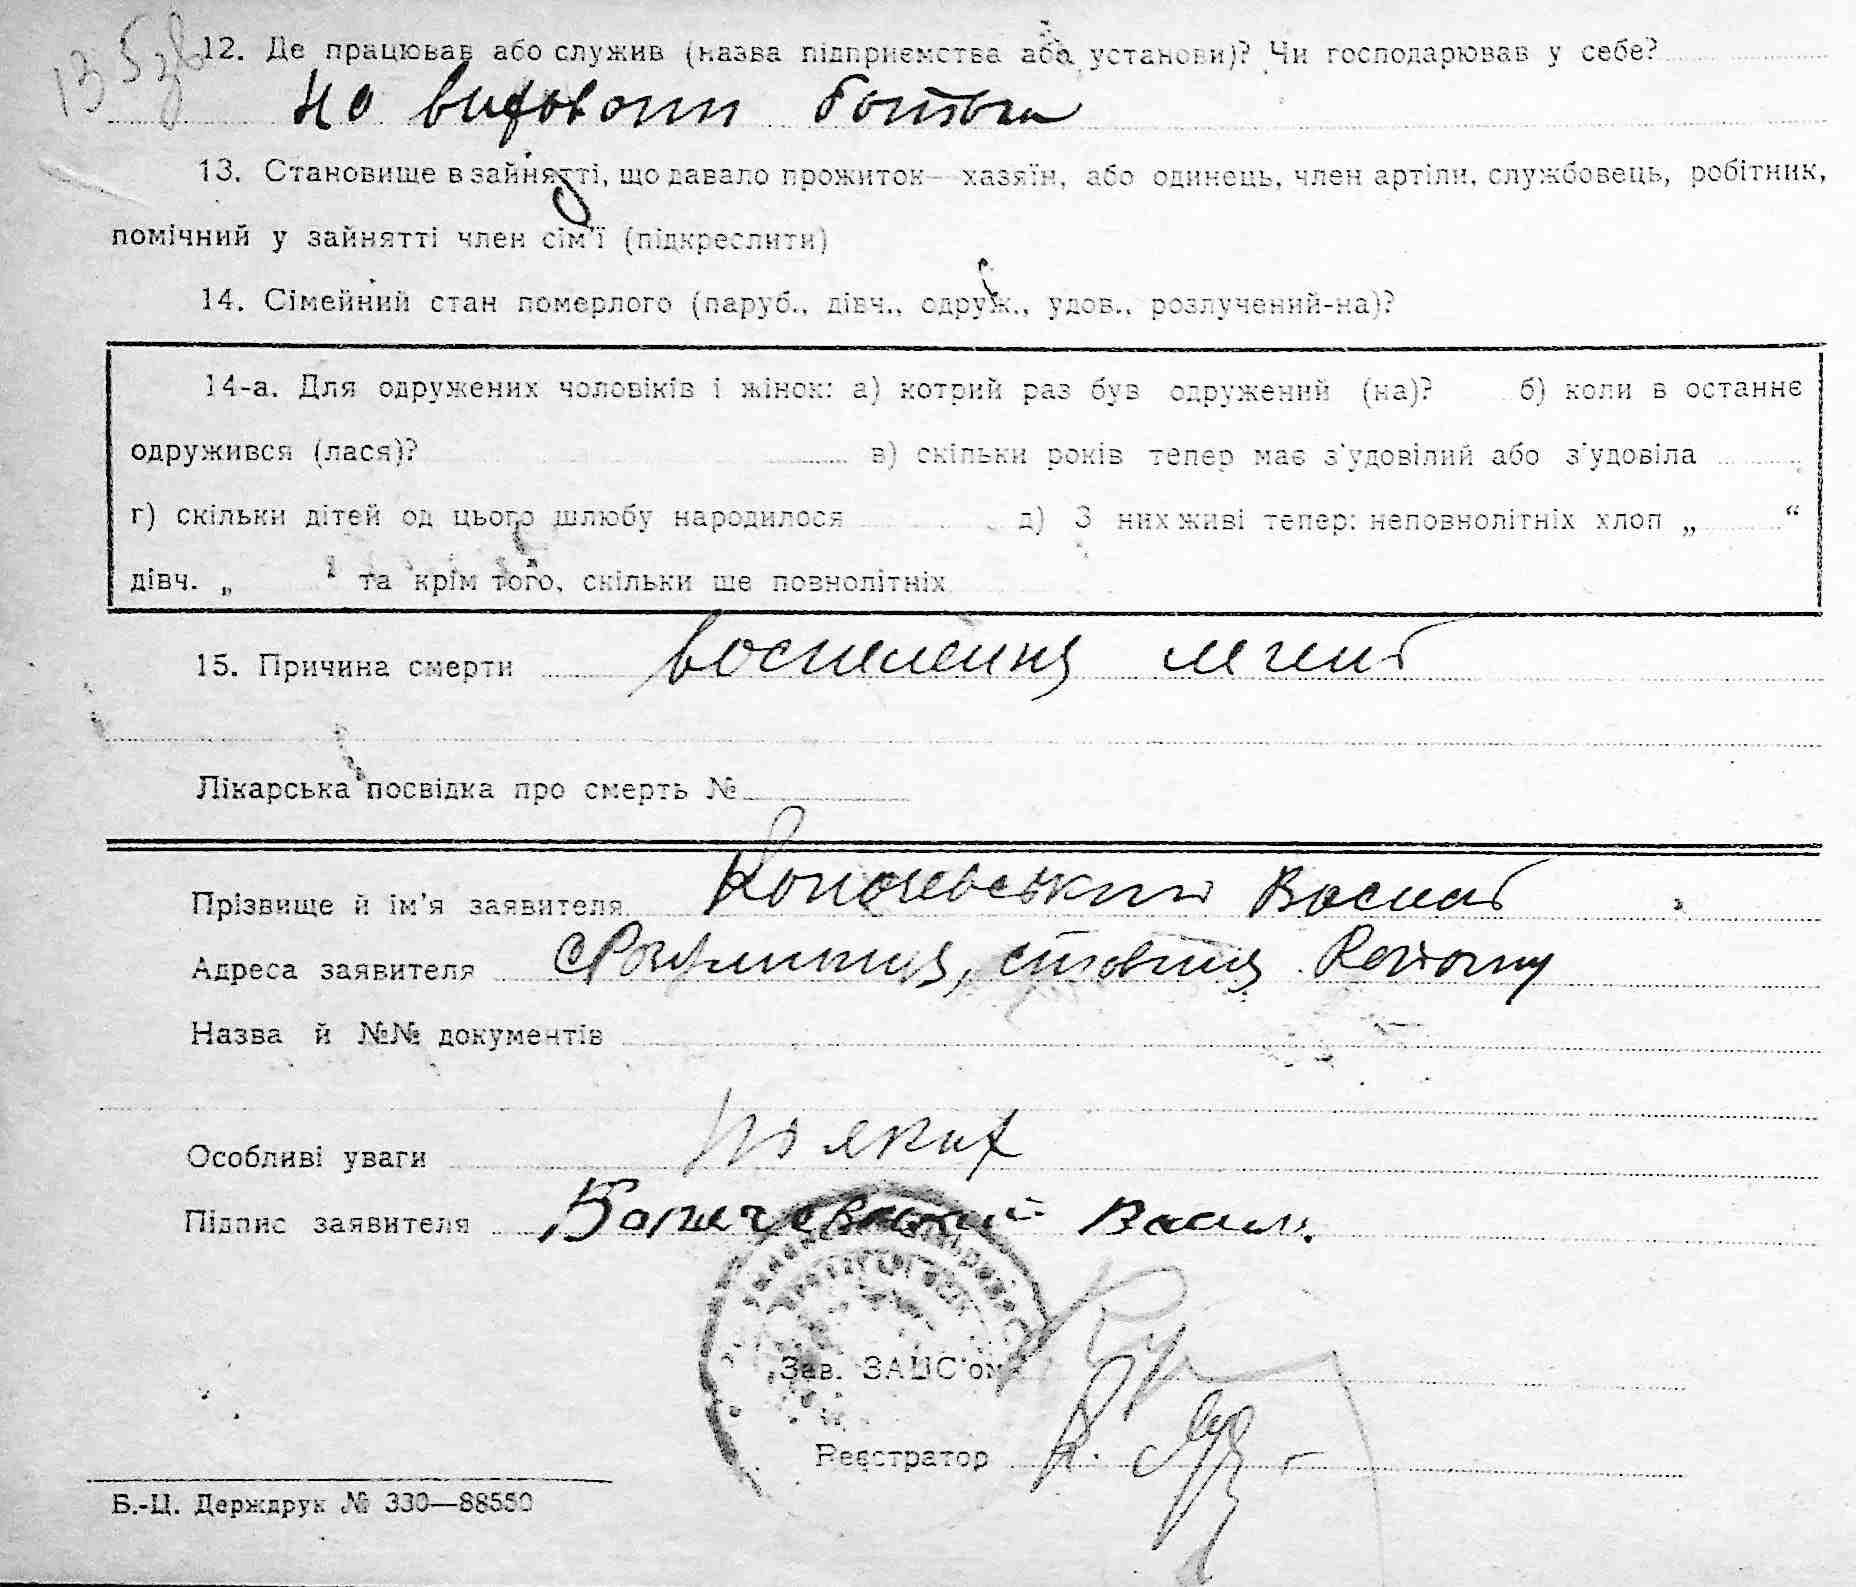 12. Де працював або служив (назва підприємства або установи)? Чи господарював у себе?
на батька
13. Становище в зайнятті, що давало прожиток—хазяїн, або одинець, член артіли, службовець, робітник,
помічний у зайнятті член сім'ї (підкреслити)
14. Сімейний стан померлого (паруб., дівч., одруж., удов., розлучений-на)?
14-а. Для одружених чоловіків і жінок: а) котрий раз був одружений (на)? б) коли в останнє
одружився (лася)? в) скільки років тепер має з'удовілий або з'удовіла
г) скільки дітей од цього шлюбу народилося д) З них живі тепер: неповнолітніх хлоп „ “
дівч. „ та крім того, скільки ще повнолітніх
15. Причина смерти воспаления легких
Лікарська посвідка про смерть №
Прізвище й ім'я заявителя Василь
Адреса заявителя
Назва й №№ документів
Особливі уваги ніяких
Підпис заявителя Васил.
Зав. ЗАЦС'ом
Реєстратор
Б.-Ц. Держдрук № 330—88550